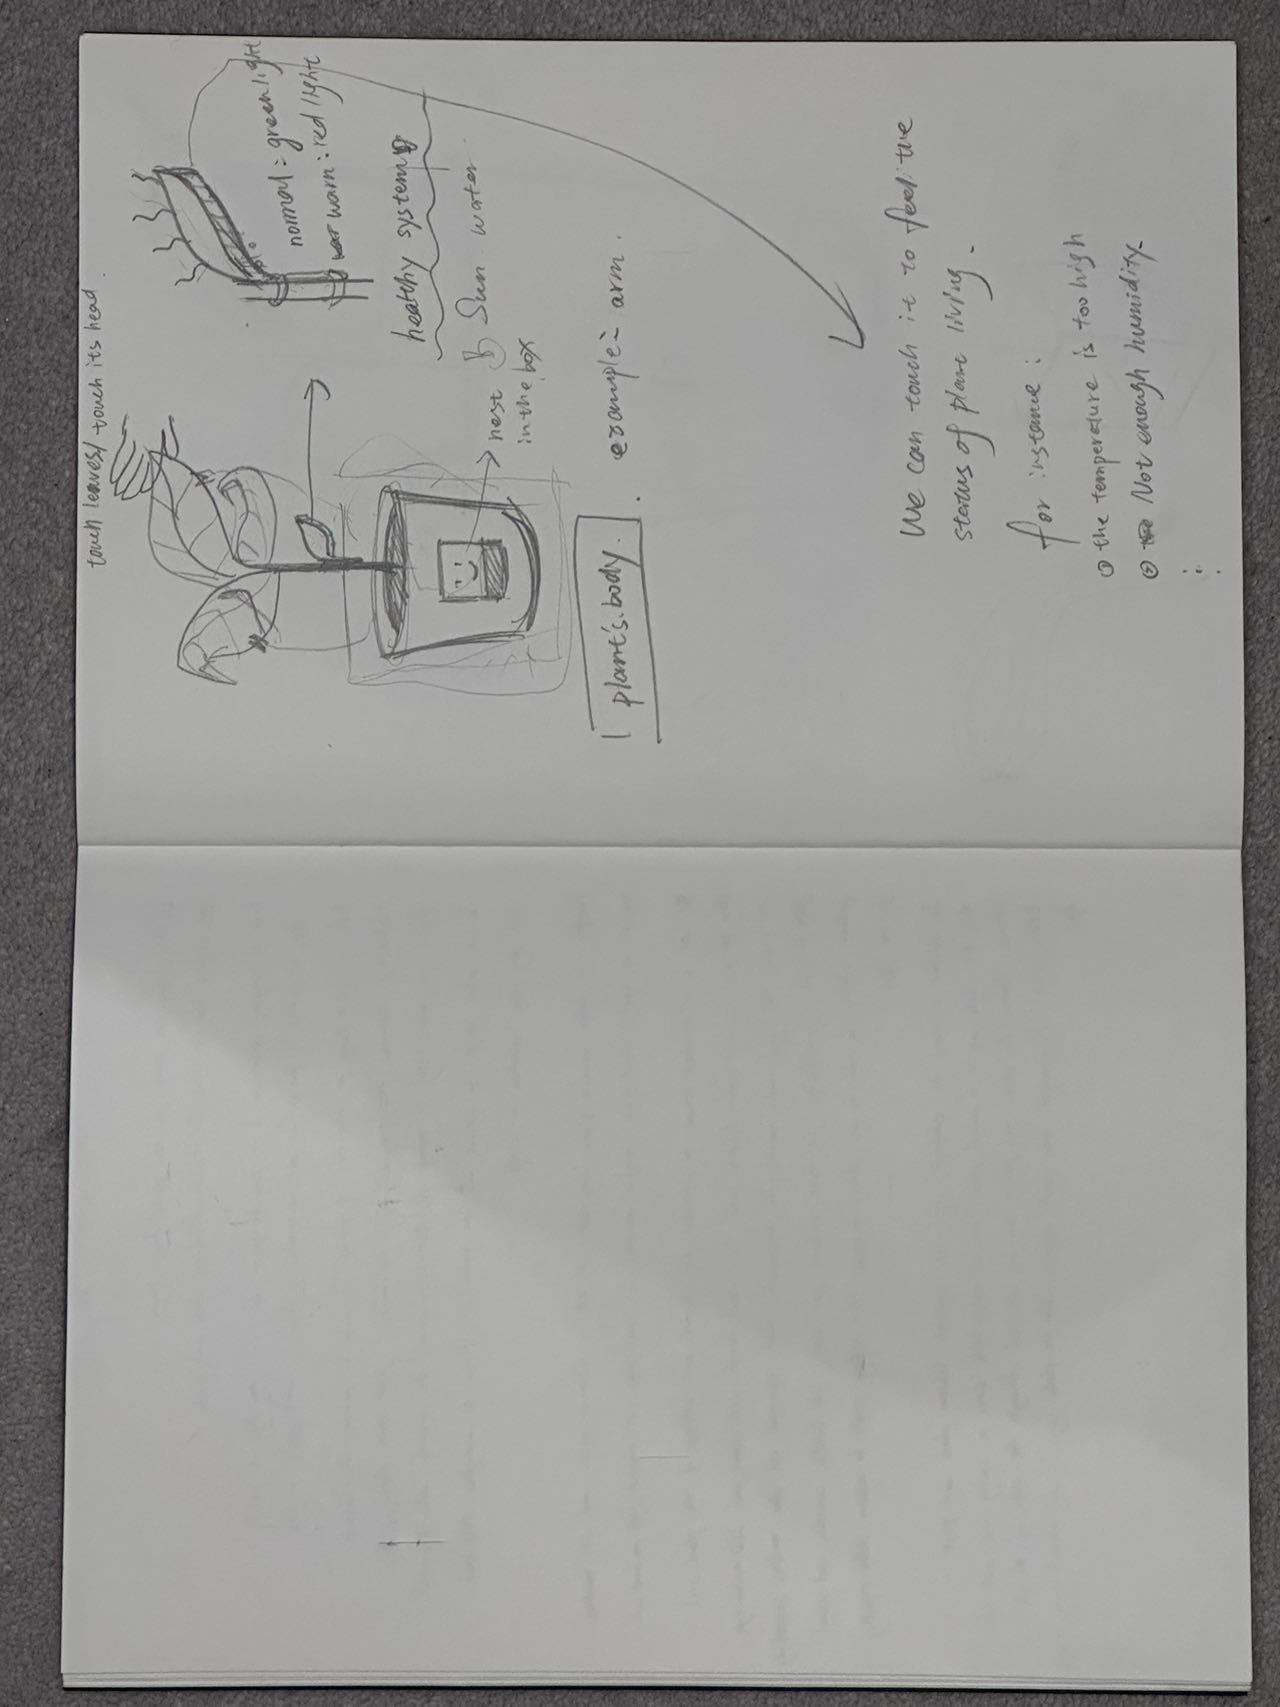 touch leaves/ touch its head.
normal: green light
warn: red light
healthy system
Sun water
nest
in the box
plant's body.
example: arm.
We can touch it to feel the
status of plant living.
for instance:
the temperature is too high
Not enough humidity.